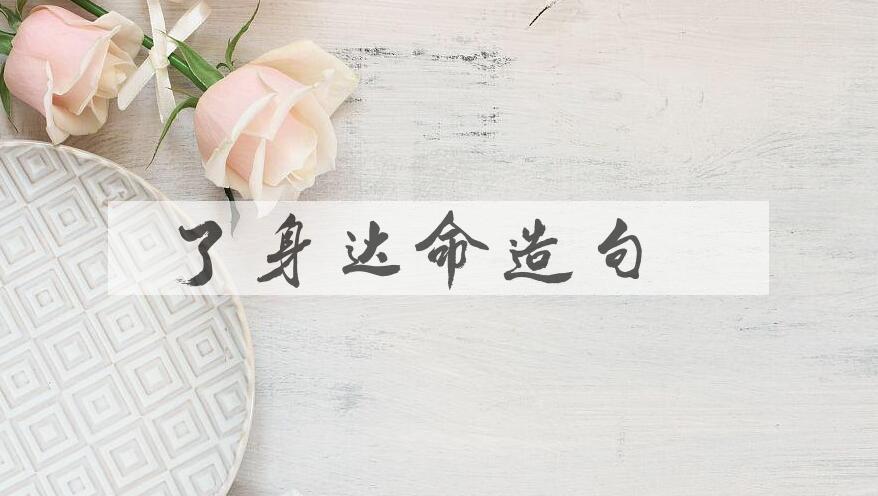 了身达命造句